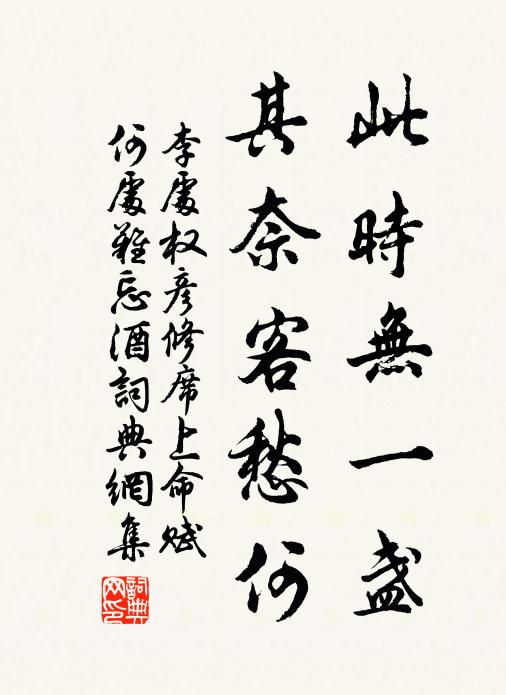 此時無一盞
其奈客愁何
李處權彥修席上命賦
何處難忘酒詞典網集
詞典網印